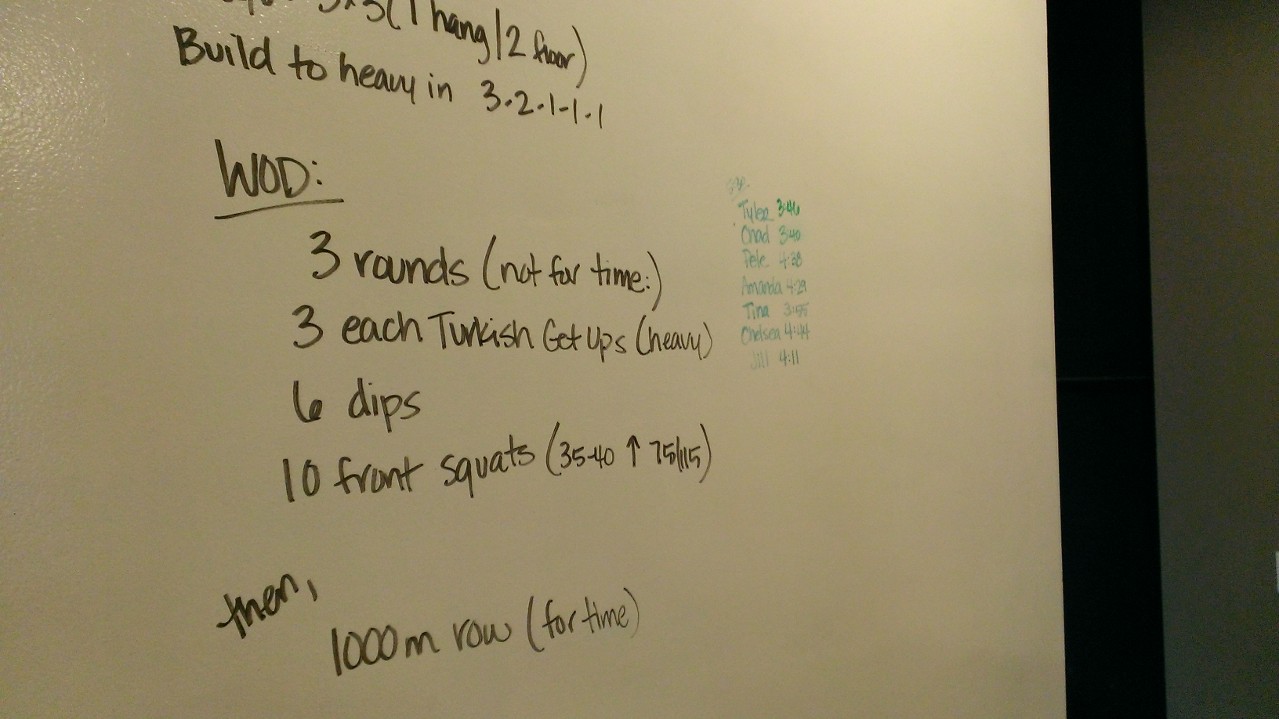 3x3 (1 hang/2 floor)
Build to heavy in 3-2-1-1-1
WOD:
3 rounds (not for time:)
3 each Turkish Get Ups (heavy)
6 dips
10 front squats (35-40 ↑ 75/115)
then,
1000m row (for time)
Tyler 3:46
Chad 3:40
Pete 4:28
Amanda 4:29
Tina 3:55
Chelsea 4:44
Jill 4:11